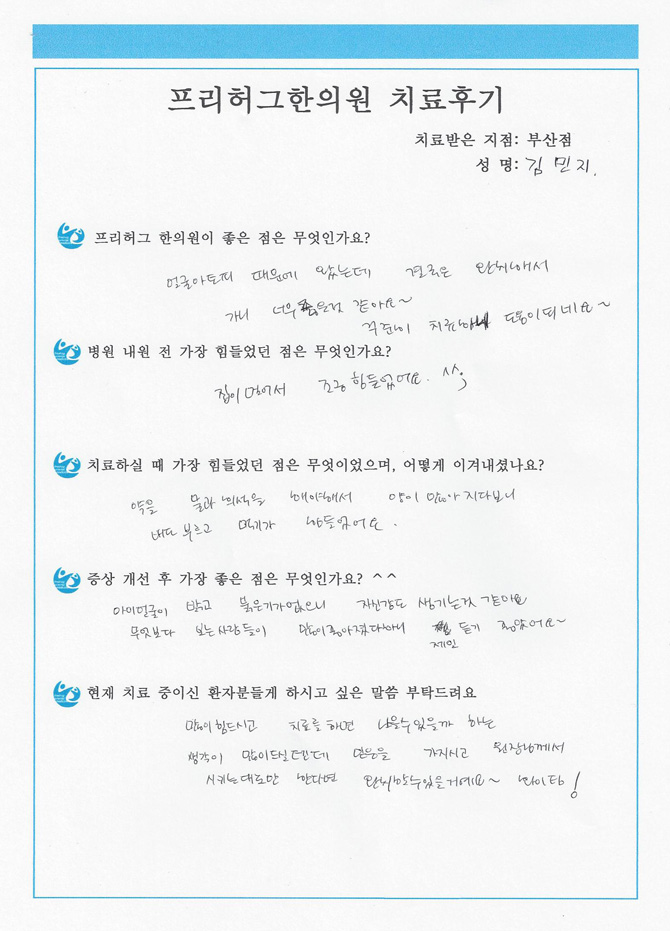 프리허그한의원 치료후기
치료받은 지점: 부산점
성 명: 김민지.
프리허그 한의원이 좋은 점은 무엇인가요?
얼굴아토피 때문에 왔는데 결국은 완치해서
가니 너무 좋은것 같아요~
꾸준히 치료하니 도움이되네요~
병원 내원 전 가장 힘들었던 점은 무엇인가요?
집이 멀어서 조금 힘들었어요. ^^;
치료하실 때 가장 힘들었던 점은 무엇이었으며, 어떻게 이겨내셨나요?
약을 물과 희석을 해야해서 양이 많아 지다보니
배도 부르고 먹기가 힘들었어요.
증상 개선 후 가장 좋은 점은 무엇인가요? ^^
아이얼굴이 밝고 붉은기가없으니 자신감도 생기는것 같아요
무엇보다 보는사람들이 많이좋아졌다하니 듣기 좋았어요~
제일
현재 치료 중이신 환자분들게 하시고 싶은 말씀 부탁드려요
많이힘드시고 치료를하면 나을수있을까 하는
생각이 많이드실텐데 믿음을 가지시고 원장님께서
시키는대로만 한다면 완치할수있을거예요~ 화이팅!